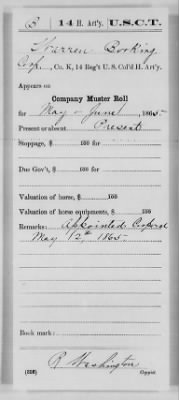 B | 14 H. Art'y. | U.S.C.T.
Warren Booking
Corp., Co. K, 14 Reg't U. S. Col'd H. Art'y.
Appears on
Company Muster Roll
for May & June, 1865.
Present or absent Present
Stoppage, $ 100 for
Due Gov't, $ 100 for
Valuation of horse, $ 100
Valuation of horse equipments, $ 100
Remarks: Appointed Corporal
May 12th 1865.
Book mark:
R Washington
(358) Copyist.